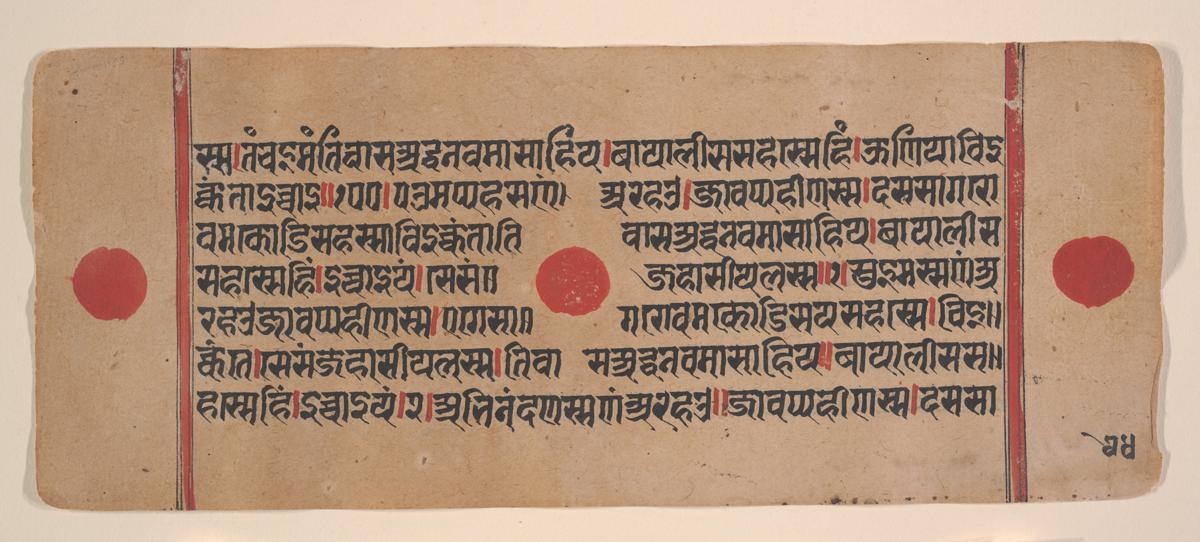 स्स।तंचइमंतिवासअद्धनवमासाहिय।बायालीससहस्सेहिं।ऊणियाविइ
क्कंताइच्चाइ॥ पउमप्पहस्सणं। अरहउ।जावप्पहीणस्स।दससागरो
वमकोडिसहस्साविइक्कंताति वासअद्धनवमासाहिय।बायालीस
सहस्सेहिं।इच्चाइयं।सेसं॥ जहासीयलस्स॥ सुइमस्सणंअ
रहउजावप्पहीणस्स।एगेसा॥ गरोवमकोडिसयसहस्स।विइ॥
क्कंते।सेसंजहासीयलस्स।तिवा सअद्धनवमासाहिय॥बायालीसस॥
हस्सेहिं।इच्चाइयं।२।अभिनंदणस्सणंअरहउ॥जावप्पहीणस्स।दससा